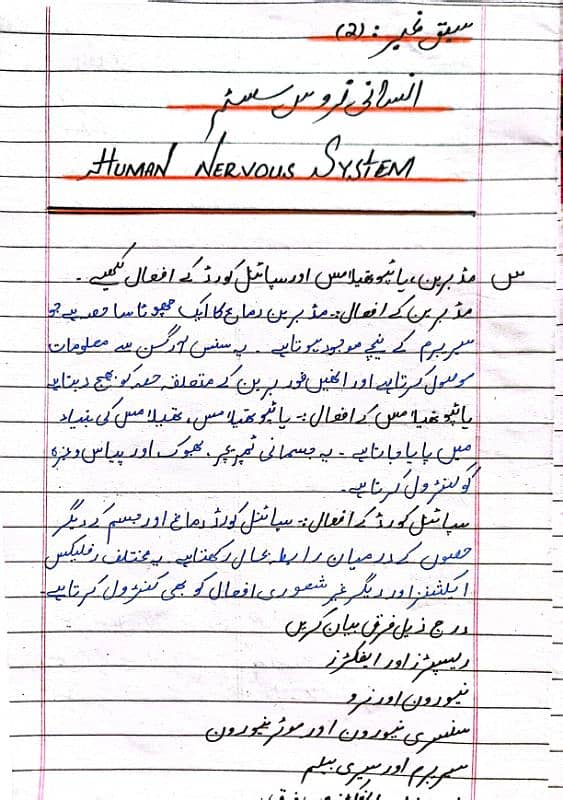 سبق نمبر: (2)
انسانی نروس سسٹم
HUMAN NERVOUS SYSTEM
س مڈبرین، ہائپوتھیلامس اور سپائنل کورڈ کے افعال لکھیے۔
مڈبرین کے افعال:- مڈبرین دماغ کا ایک چھوٹا سا حصہ ہے جو
سیربرم کے نیچے موجود ہوتا ہے۔ یہ سنس آرگنس سے معلومات
موصول کرتا ہے اور انھیں فور برین کے متعلقہ حصہ کو بھیج دیتا ہے
ہائپوتھیلامس کے افعال:- ہائپوتھیلامس، تھیلامس کی بنیاد
میں پایا جاتا ہے۔ یہ جسمانی ٹمپریچر، بھوک اور پیاس وغیرہ
کو کنٹرول کرتا ہے۔
سپائنل کورڈ کے افعال:- سپائنل کورڈ دماغ اور جسم کے دیگر
حصوں کے درمیان رابطہ بحال رکھتا ہے۔ یہ مختلف رفلیکس
ایکشنز اور دیگر غیر شعوری افعال کو بھی کنٹرول کرتا ہے۔
درج ذیل فرق بیان کریں
ریسپٹرز اور افکٹرز
نیورون اور نرو
سنسری نیورون اور موٹر نیورون
سیربرم اور سیری بیلم